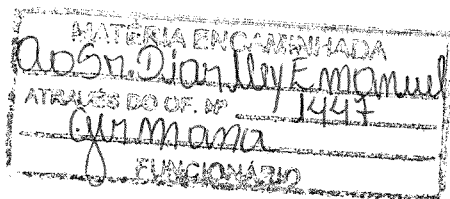 MATÉRIA ENCAMINHADA
ao Sr. Diarlley Emanuel
ATRAVÉS DO OF. Nº 1447
Girmana
FUNCIONÁRIO